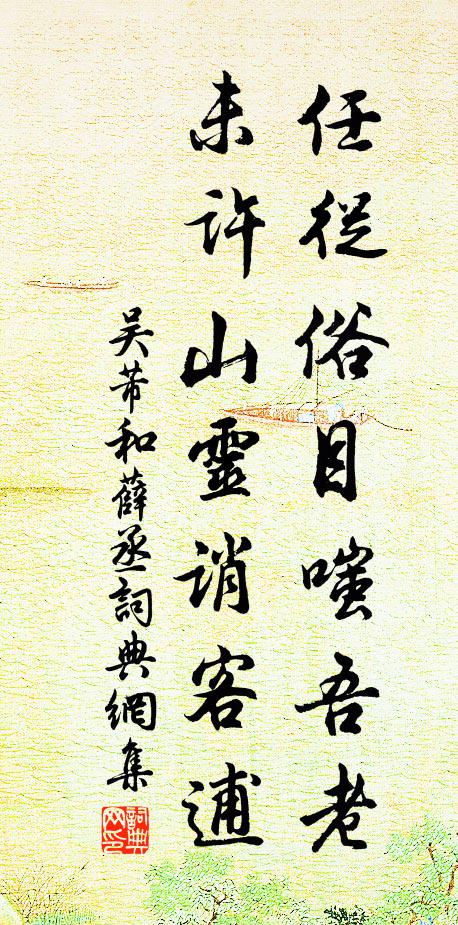 任從俗目嗤吾老
未許山靈誚客逋
吴芾和薛丞詞典網集
詞典网印